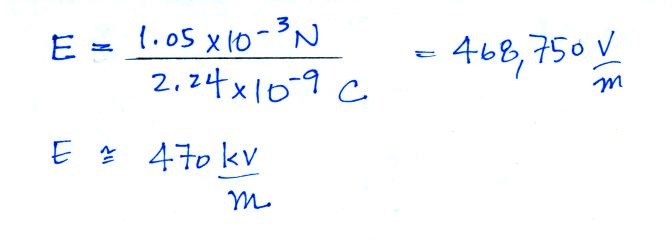 E = 1.05 x10-³N / 2.24x10-⁹ C = 468,750 V/m
E ≅ 470 kV/m